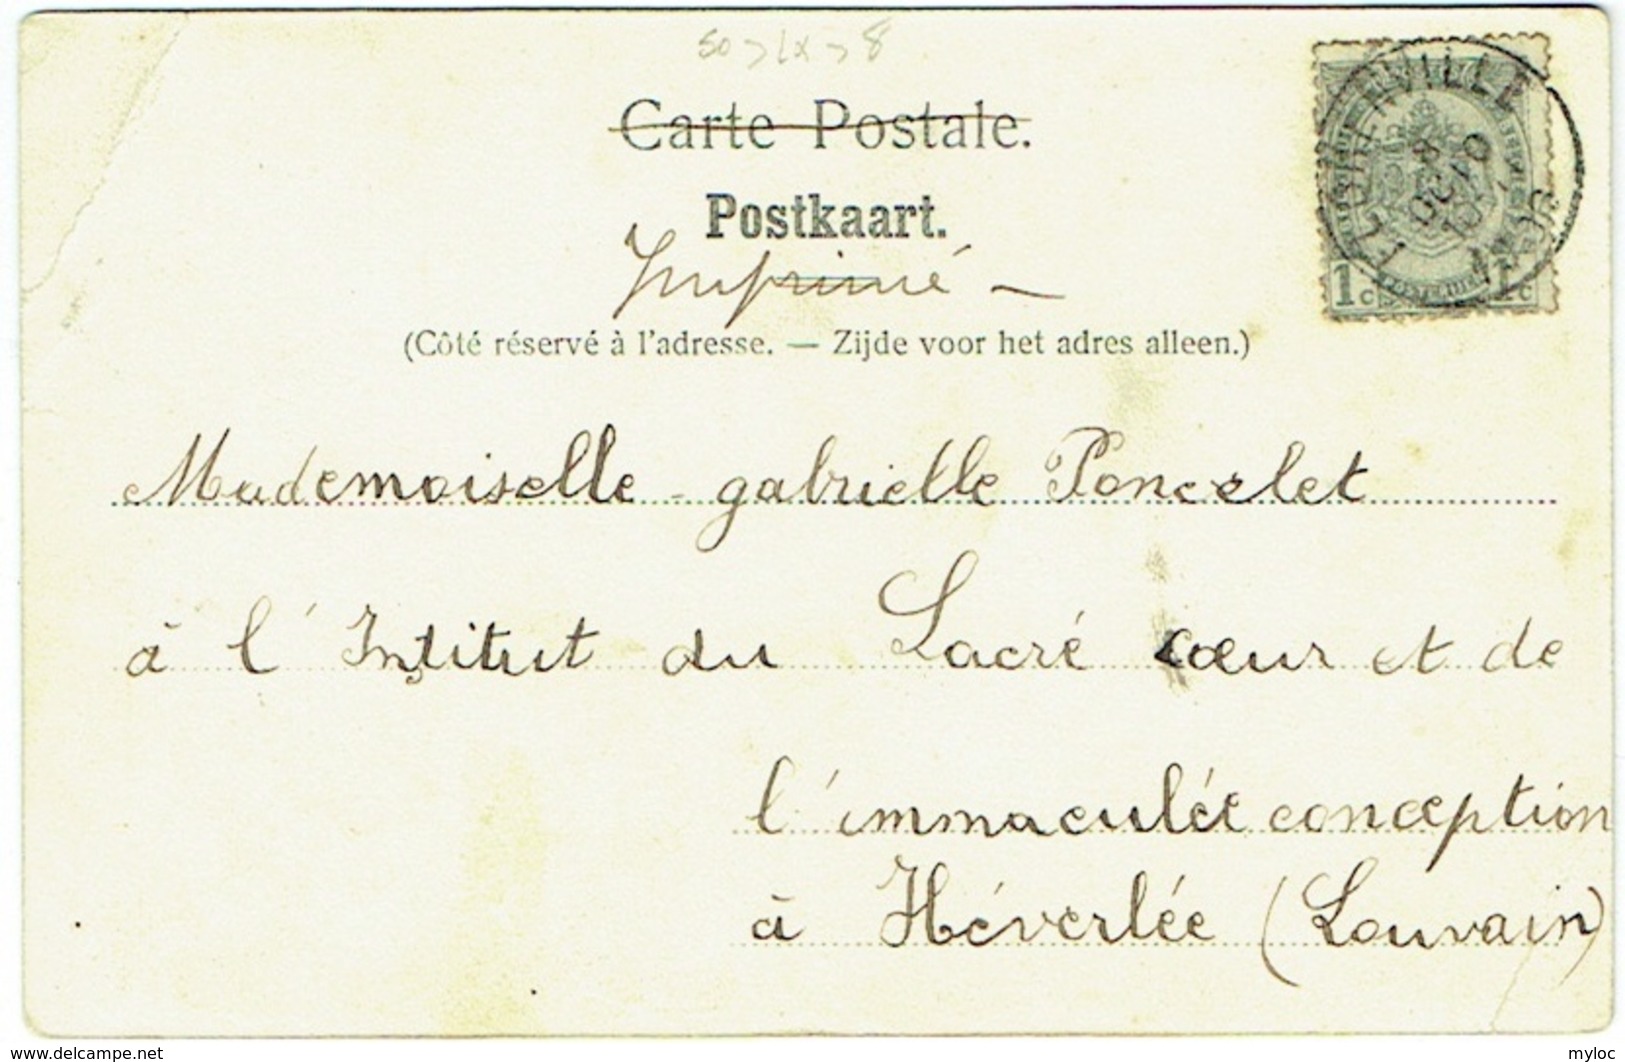 50 > IX > 8
Carte Postale.
Postkaart.
Imprimé —
(Côté réservé à l'adresse. — Zijde voor het adres alleen.)
1c 1c
Mademoiselle - gabrielle Poncelet
à l'Institut du Sacré cœur et de
l'immaculée conception
à Héverlée (Louvain)
www.delcampe.net
myloc